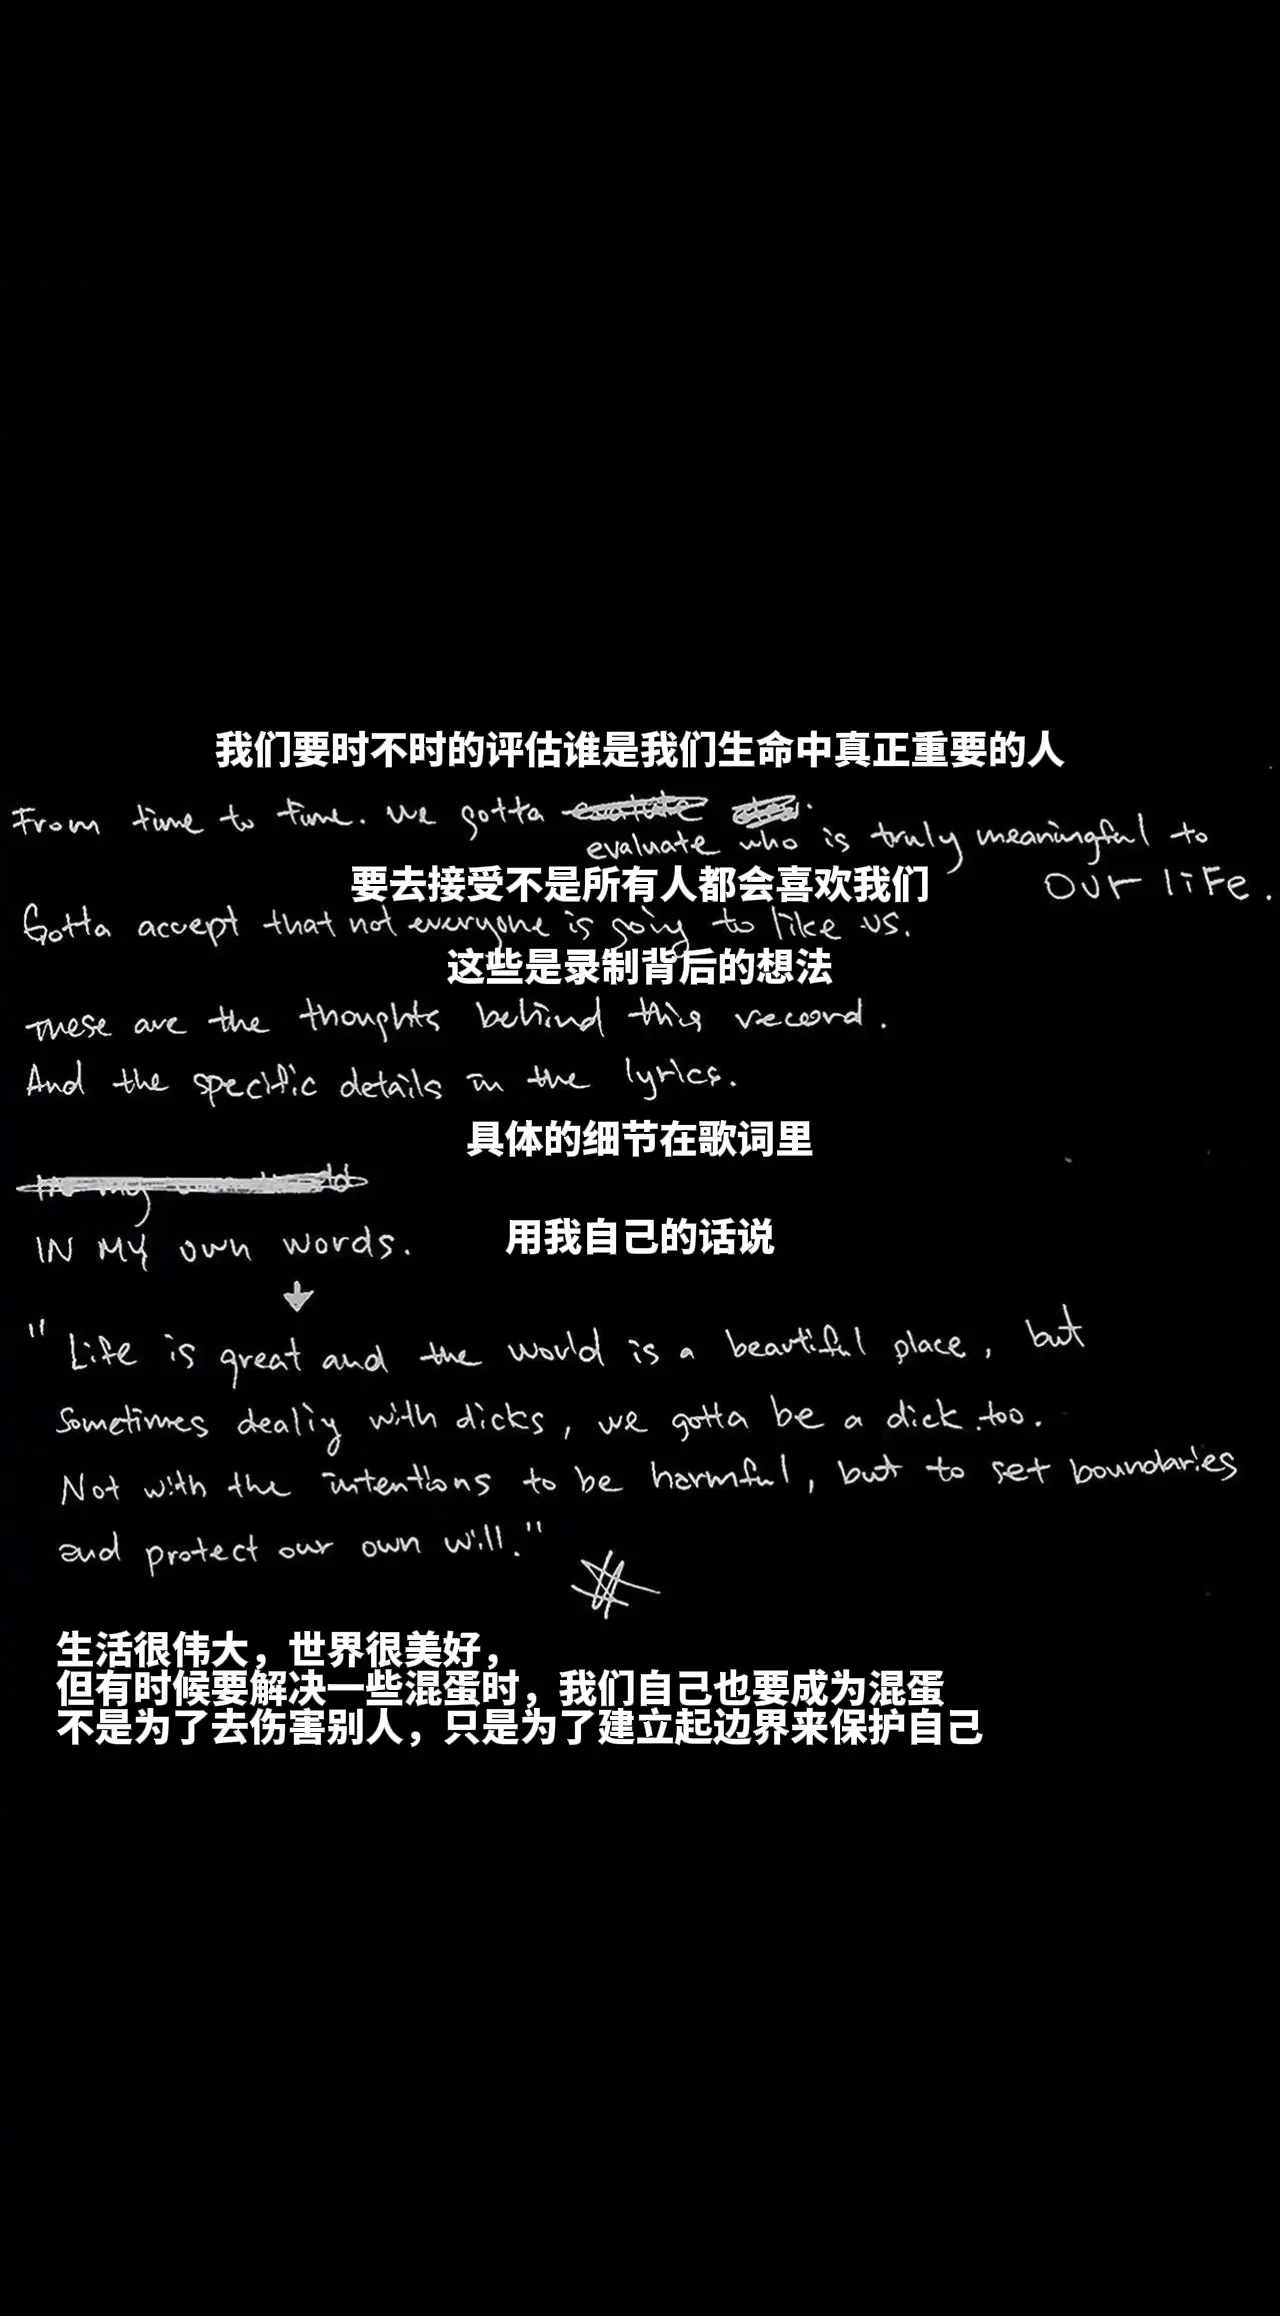 我们要时不时的评估谁是我们生命中真正重要的人
From time to time. We gotta
evaluate who is truly meaningful to
our life.
要去接受不是所有人都会喜欢我们
Gotta accept that not everyone is going to like us.
这些是录制背后的想法
These are the thoughts behind this record.
And the specific details in the lyrics.
具体的细节在歌词里
IN MY own words.
用我自己的话说
"Life is great and the world is a beautiful place, but
sometimes dealiy with dicks, we gotta be a dick too.
Not with the intentions to be harmful, but to set boundaries
and protect our own will."
生活很伟大，世界很美好，
但有时候要解决一些混蛋时，我们自己也要成为混蛋
不是为了去伤害别人，只是为了建立起边界来保护自己